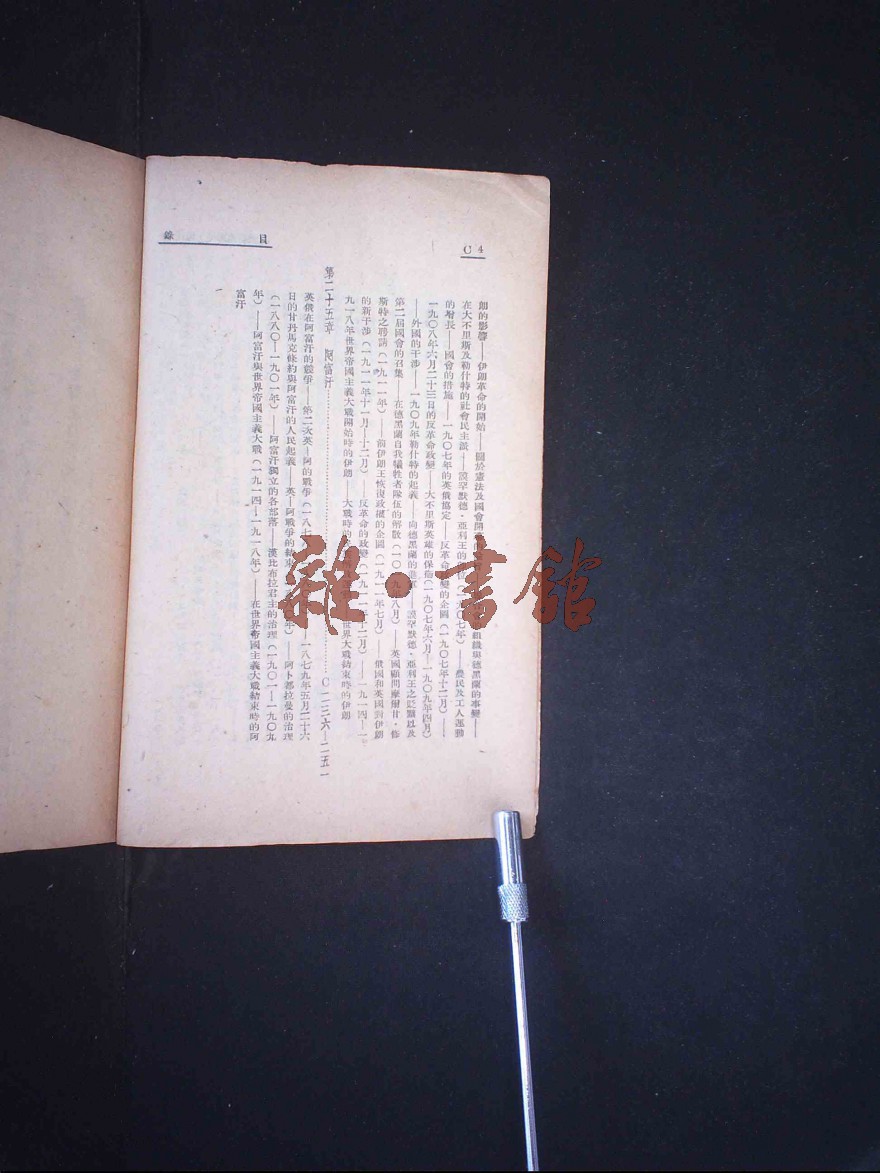 目錄
C4
創的影響——伊朗革命的開始——關於憲法及國會開 組織與德黑蘭的事變——
在大不里斯及勒什特的社會民主黨——謨罕默德·亞利王的 位(一九〇七年)——農民及工人運動
的增長——國會的措施——一九〇七年的英俄協定——反革命 變的企圖(一九〇七年十二月)——
一九〇八年六月二十三日的反革命政變——大不里斯英雄的保衛(一九〇七年六月——一九〇九年四月)
——外國的干涉——一九〇九年勒什特的起義——向德黑蘭的進 ——謨罕默德·亞利王之貶黜以及
第二屆國會的召集——在德黑蘭自我犧牲者隊伍的解散(一〇一九年八月)——英國顧問摩爾甘·修
斯特之聘請(一九一一年)——前伊朗王恢復政權的企圖(一九一一年七月)——俄國和英國對伊朗
的新干涉(一九一一年十一月——十二月)——反革命的政變(一九一一年十二月)——一九一四——一
九一八年世界帝國主義大戰開始時的伊朗——大戰時的 世界大戰結束時的伊朗
第二十五章 阿富汗 C二三六——二五一
英俄在阿富汗的競爭——第二次英—阿的戰爭(一八七 ——一八七九年五月二十六
日的甘丹馬克條約與阿富汗的人民起義——英—阿戰爭的結束 年)——阿卜都拉曼的治理
(一八八〇——一九〇一年)——阿富汗獨立的各部落——漢比布拉君主的治理(一九〇一——一九〇九
年)——阿富汗與世界帝國主義大戰(一九一四——一九一八年)——在世界帝國主義大戰結束時的阿
富汗
雜·書館